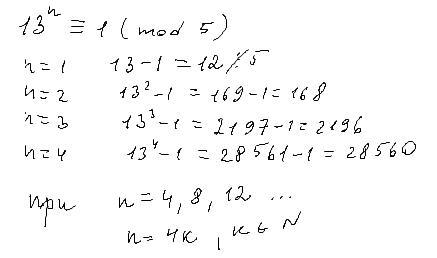 13ⁿ ≡ 1 (mod 5)
n=1 13-1 = 12 ⁒ 5
n=2 13²-1 = 169-1=168
n=3 13³-1 = 2197-1=2196
n=4 13⁴-1 = 28561-1= 28560
при n=4, 8, 12 ...
n=4k, k∈N